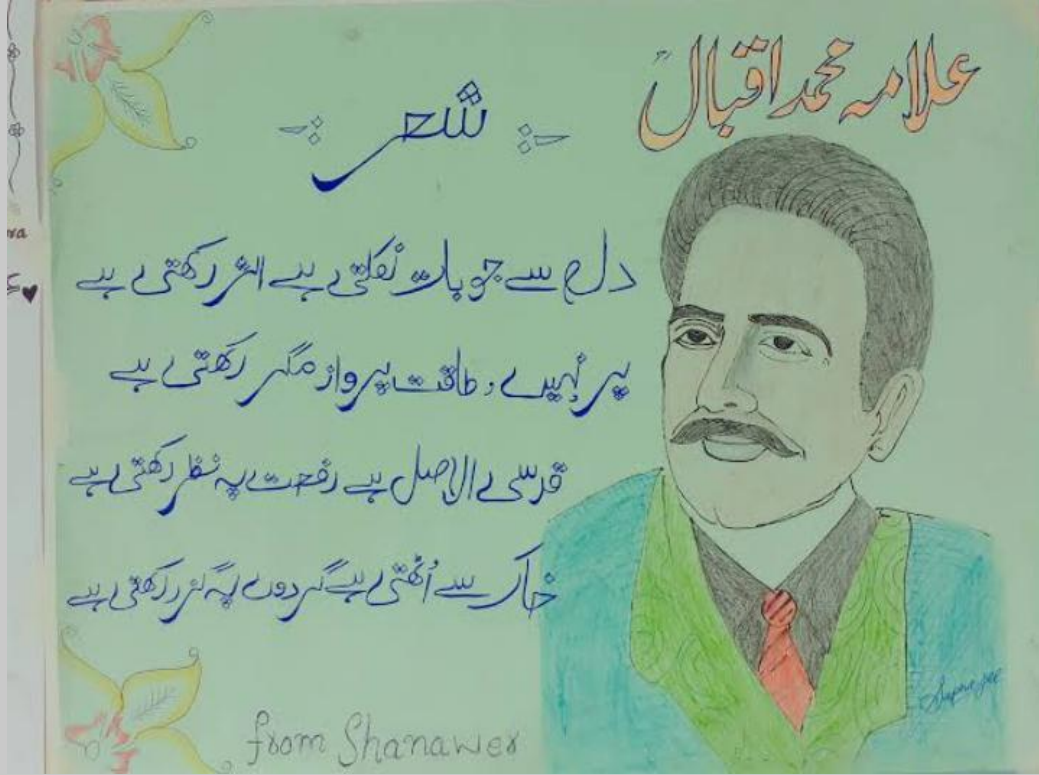 علامہ محمد اقبالؒ
شعر
دل سے جو بات نکلتی ہے اثر رکھتی ہے
پر نہیں، طاقت پرواز مگر رکھتی ہے
قدسی الاصل ہے رفعت پہ نظر رکھتی ہے
خاک سے اُٹھتی ہے گردوں پہ گزر رکھتی ہے
from Shanawer